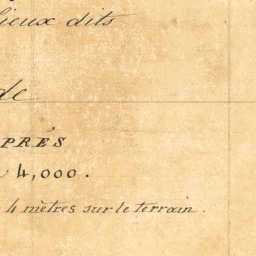 lieux dits
de
PRÉS
4,000.
4 mètres sur le terrain.